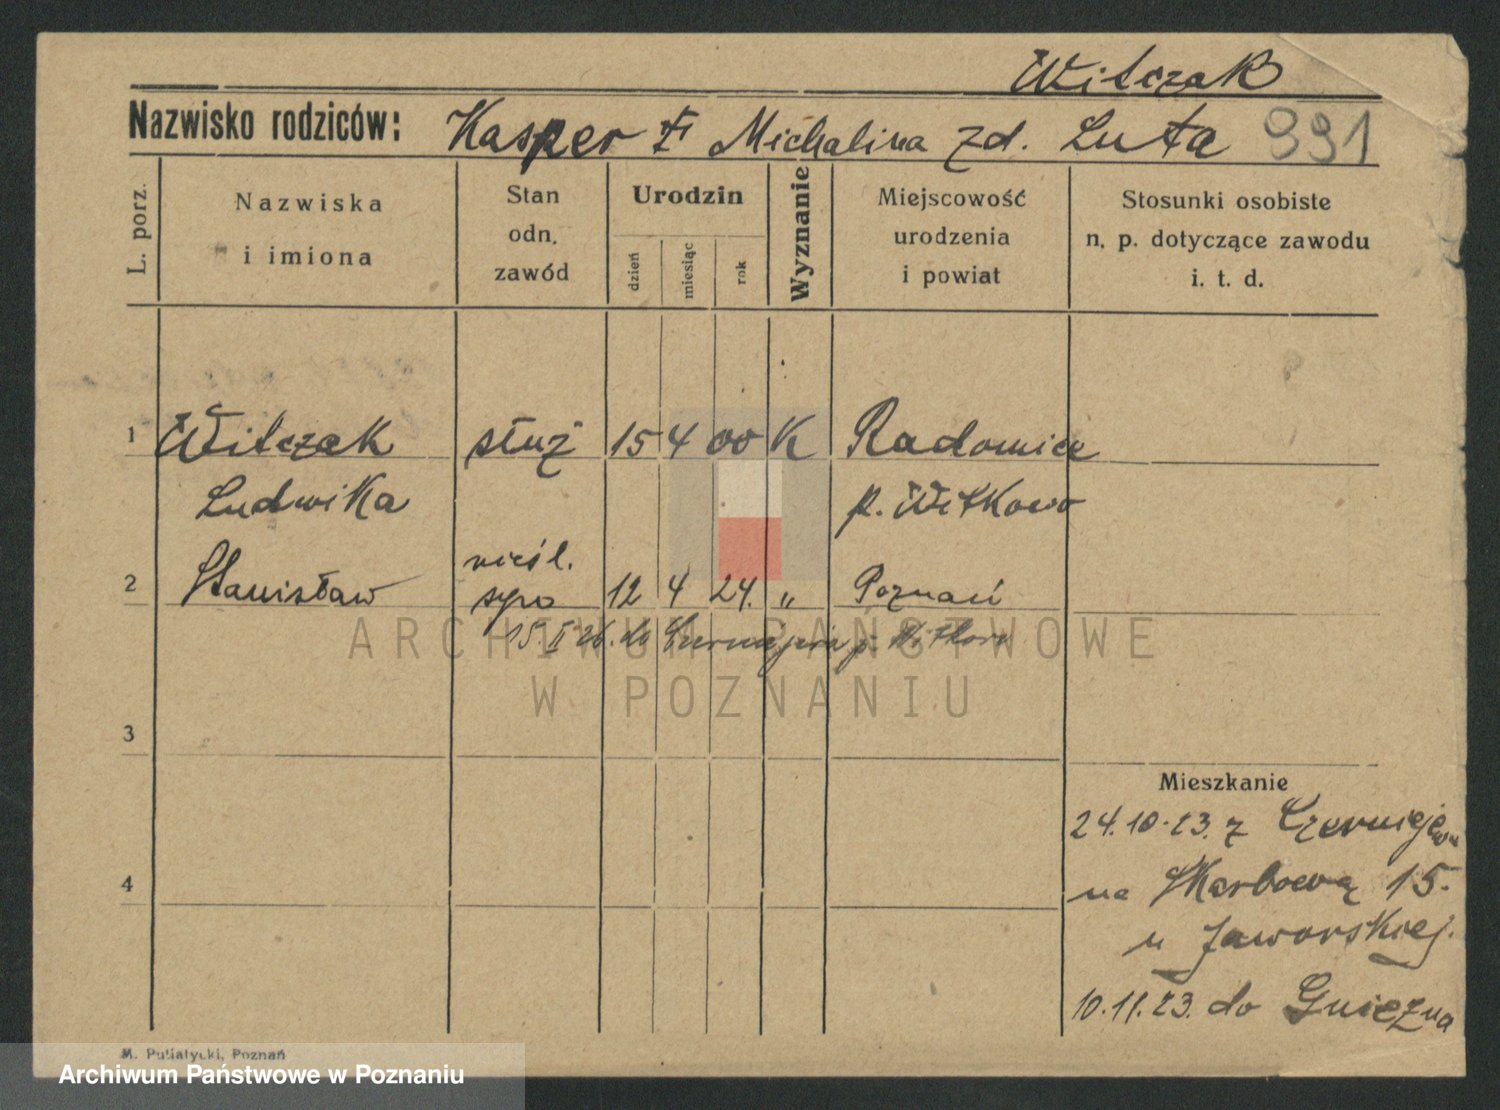 Witczak
Nazwisko rodziców: Kasper i Michalina zd. Luta 991
L. porz.
Nazwiska i imiona
Stan odn. zawód
Urodzin
dzień
miesiąc
rok
Wyznanie
Miejscowość urodzenia i powiat
Stosunki osobiste n. p. dotyczące zawodu i. t. d.
1 Witczak służ 15 4 00 K Radomice
Ludwika p. Witkowo
nieśl.
2 Stanisław syn 12 4 24. „ Poznań
15. II 26. do p. Witkowo
ARCHIWUM PAŃSTWOWE
W POZNANIU
3
Mieszkanie
24.10.23. z Czerniejewa
4
na Skarbową 15.
u Jaworskiej.
10.11.23. do Gniezna
M. Putiatycki, Poznań
Archiwum Państwowe w Poznaniu